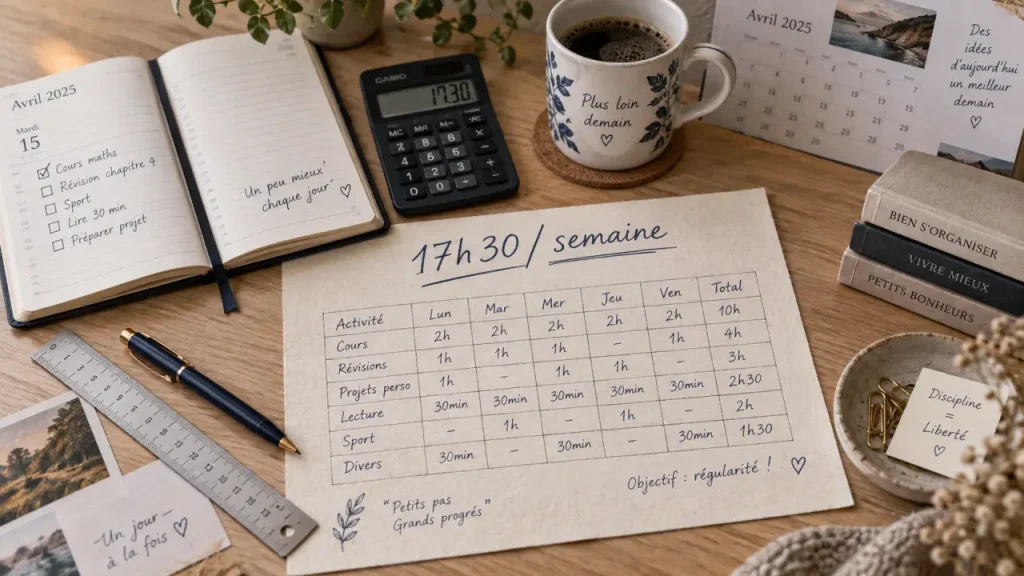 Avril 2025
Mardi
15
Cours maths
Révision chapitre 4
Sport
Lire 30 min
Préparer projet
Un peu mieux
chaque jour
CASIO
17.30
Plus loin
demain
Avril 2025
Des
idées
d'aujourd'hui
un meilleur
demain
BIEN S'ORGANISER
VIVRE MIEUX
PETITS BONHEURS
17h30 / semaine
Activité Lun Mar Mer Jeu Ven Total
Cours 2h 2h 2h 2h 2h 10h
Révisions 1h 1h 1h – 1h 4h
Projets perso 1h – 1h 1h – 3h
Lecture 30min 30min 30min 30min 30min 2h30
Sport – 1h – 1h – 2h
Divers 30min – 30min – 30min 1h30
"Petits pas
Grands progrés"
Objectif : régularité !
Discipline
=
Liberté
Un jour –
à la fois